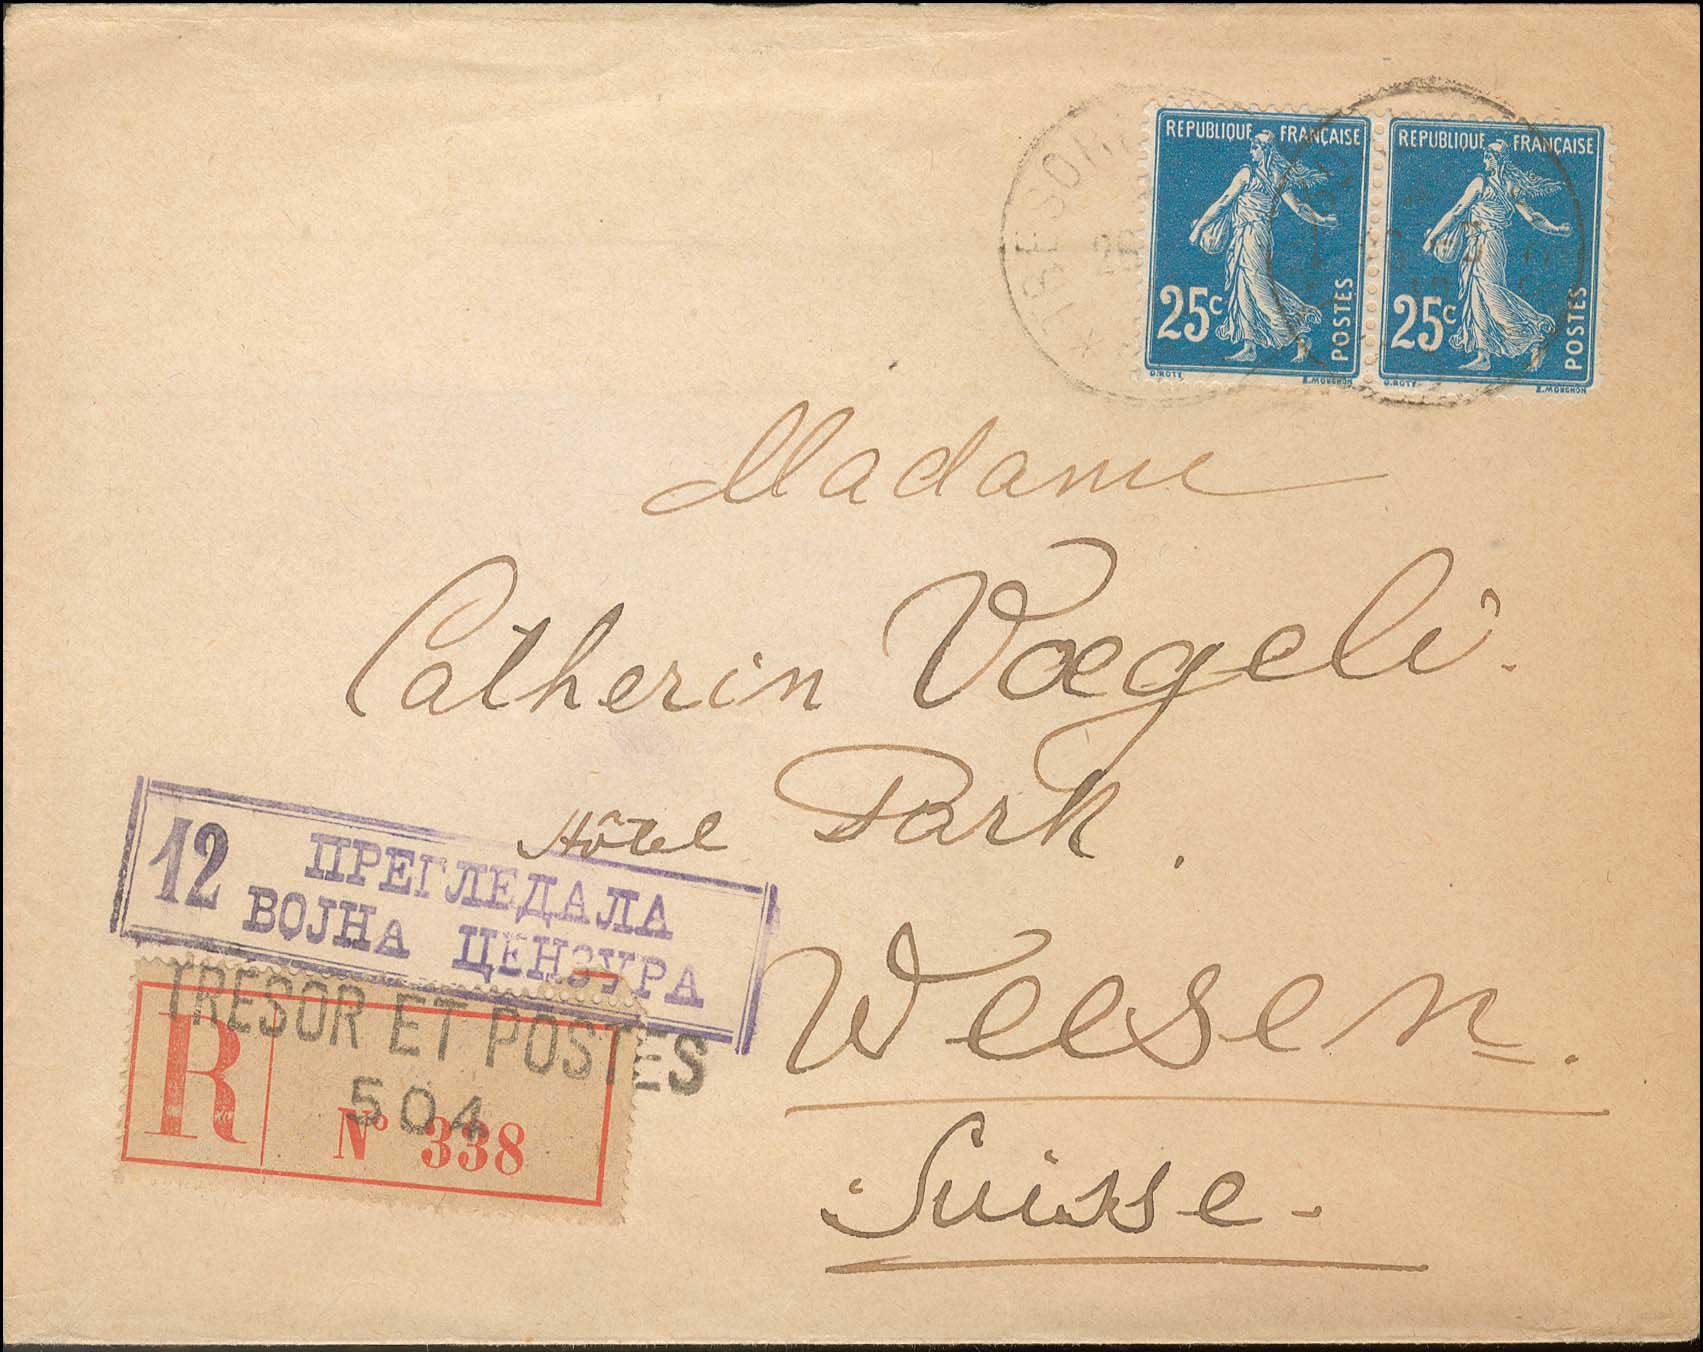 TRESOR
28
REPUBLIQUE FRANÇAISE
25c
POSTES
O.ROTY
E.MOUCHON
REPUBLIQUE FRANÇAISE
25c
POSTES
O.ROTY
E.MOUCHON
Madame
Catherin Voegeli.
Hôtel Park.
Weesen.
Suisse.
12 ПРЕГЛЕДАЛА
ВОЈНА ЦЕНЗУРА
TRESOR ET POSTES
504
R
No 338